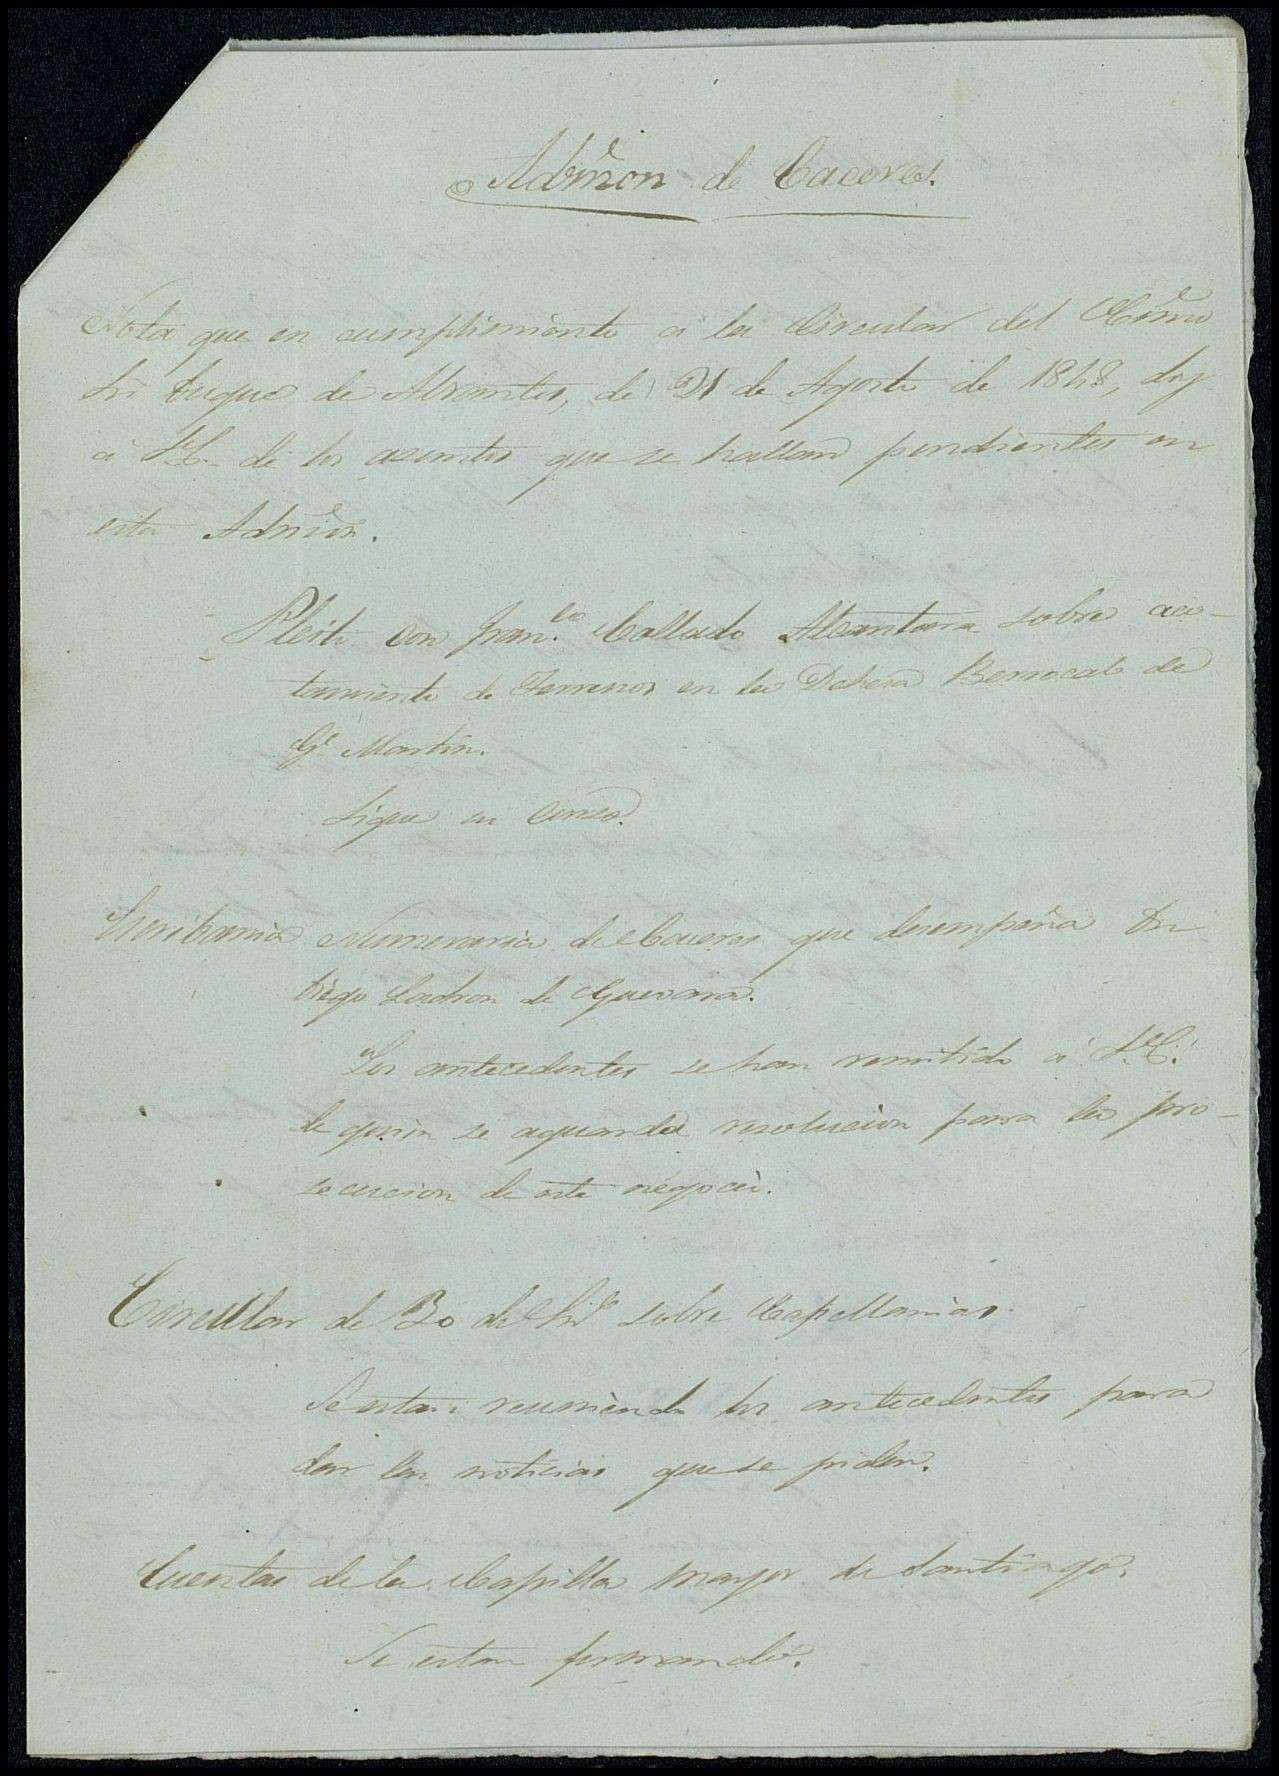 Admon de Caceres.
Nota que en cumplimiento a la Circular del Excmo
Sr Duque de Abrantes, de 21 de Agosto de 1848, doy
a S.E. de los asuntos que se hallan pendientes en
esta Admon.
Pleito con Fran.co Collado Alcantara sobre aco-
tamiento de Terrenos en la Dehesa Berrocal de
Gl Martin.
Sigue su curso.
Escribania Numeraria de Caceres que desempeña Dn
Diego Ladron de Guevara.
Los antecedentes se han remitido a S.E.
de quien se aguarda resolucion para la pro-
secucion de este negocio.
Circular de 30 de sobre Capellanias.
Se estan reuniendo los antecedentes para
dar las noticias que se piden.
Cuentas de la Capilla mayor de Santiago.
Se estan formando.